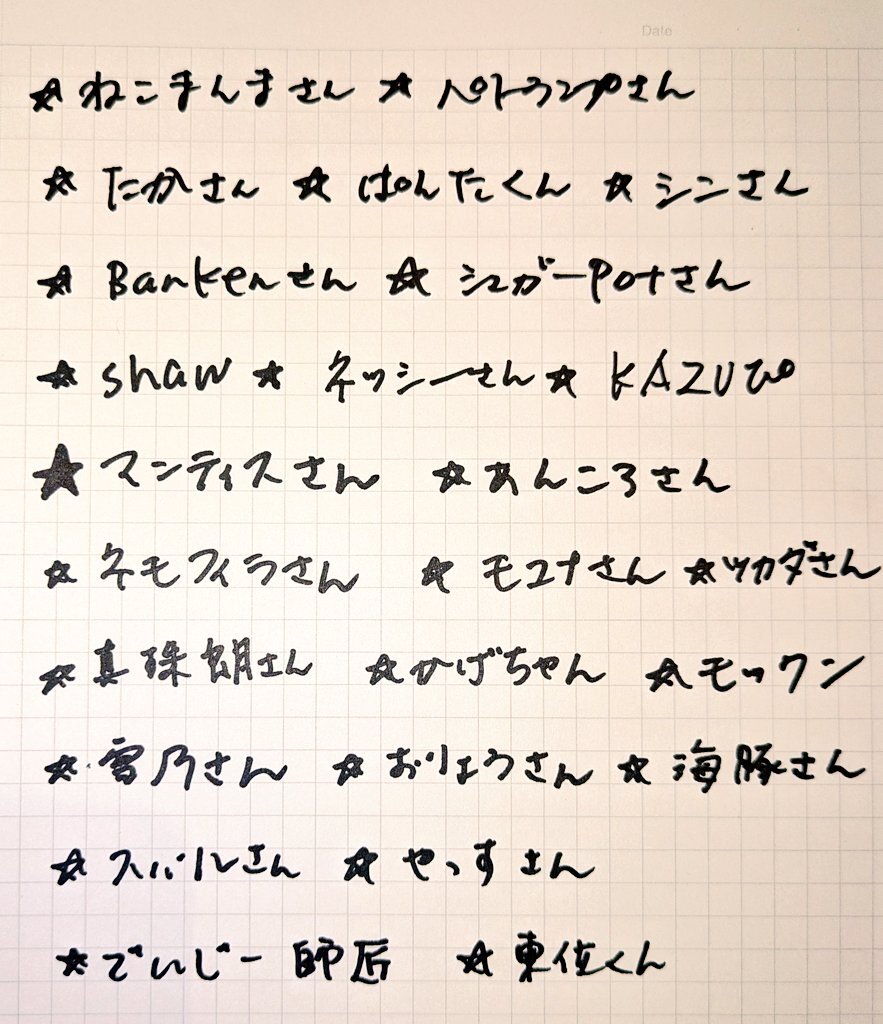 Date
★ねこまんまさん ★ペトゥンプさん
☆たかさん ☆ぱんだくん ☆シンさん
☆Bankenさん ☆シュガーPotさん
☆shaw ☆ネッシーさん ☆KAZUぴ
★マンティスさん ☆あんころさん
☆ネモフィラさん ☆モユナさん ☆ツカダさん
☆真珠朗さん ☆かげちゃん ☆モックン
☆雪乃さん ☆おりょうさん ☆海豚さん
☆スバルさん ☆やっすさん
☆でいじー師匠 ☆東位くん